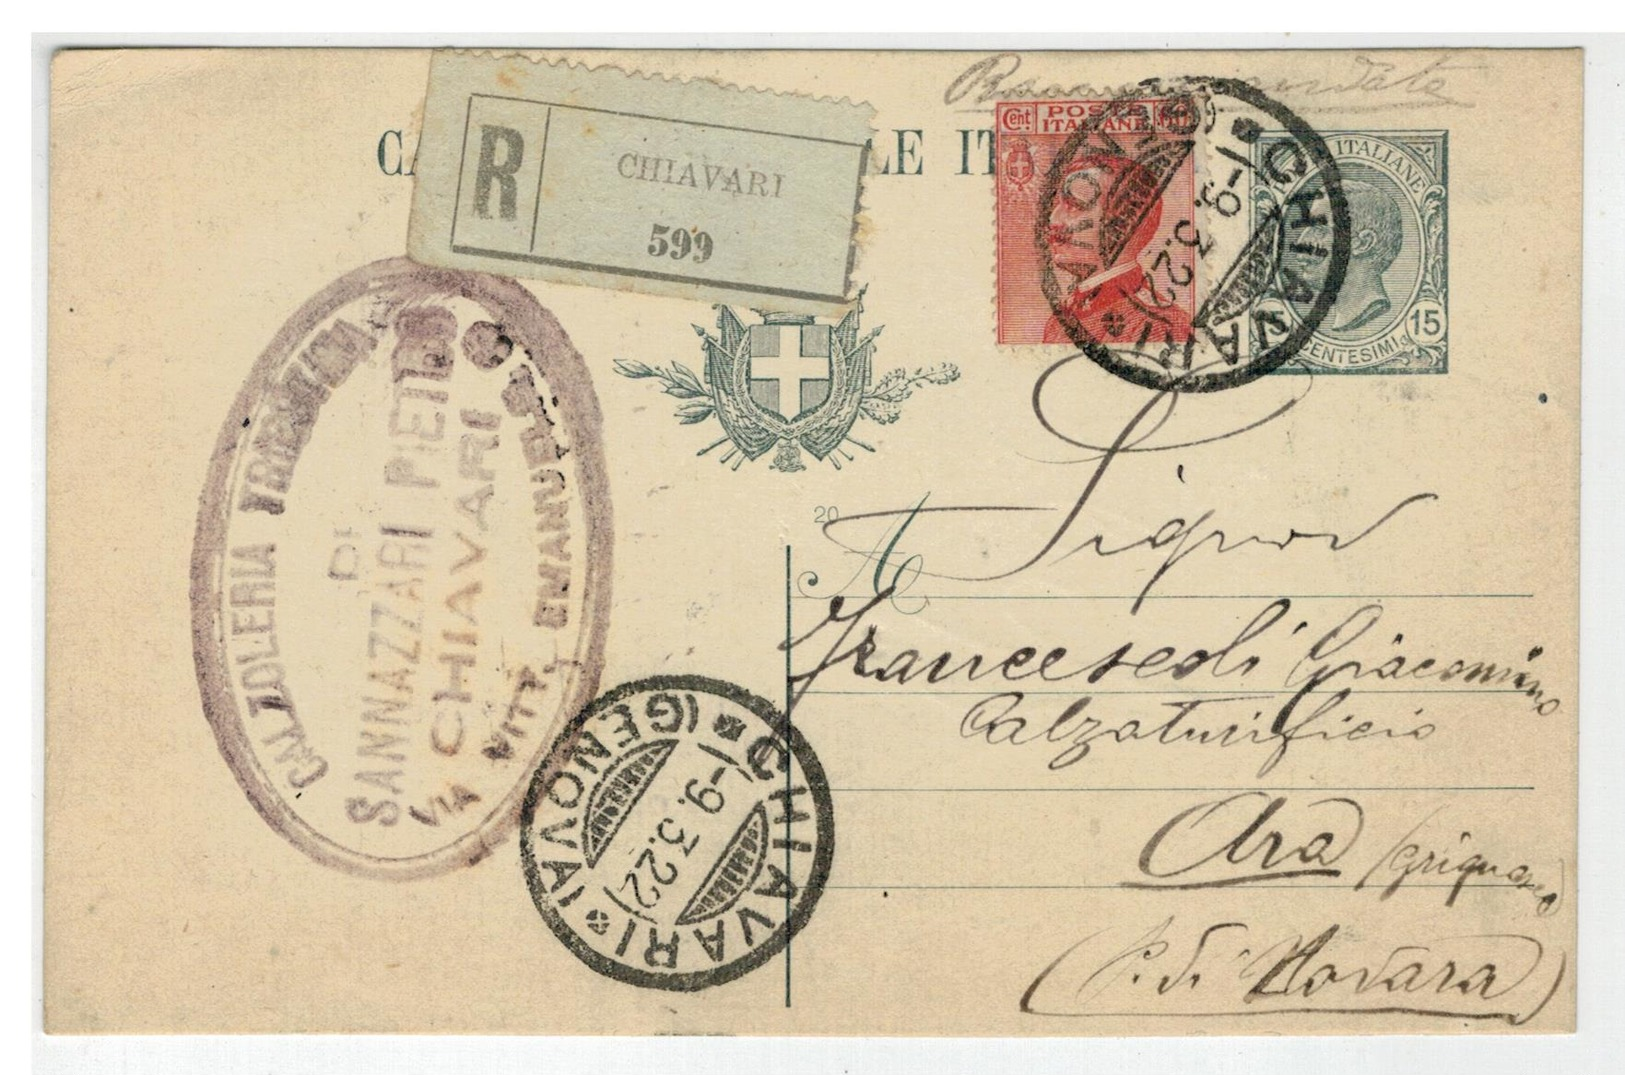 Raccomandata
R
CHIAVARI
599
Cent POSTE
ITALIANE
ITALIANE
15 15
CENTESIMI
CHIAVARI
(GENOVA)
-9.3.22
CALZOLERIA
DI
SANNAZZARI PIETRO
CHIAVARI
VIA VITT. EMANUELE
CHIAVARI
(GENOVA)
-9.3.22
20
A
Signor
Francescoli Giacomino
Calzaturificio
Ara (Grignasco)
(P. di Novara)